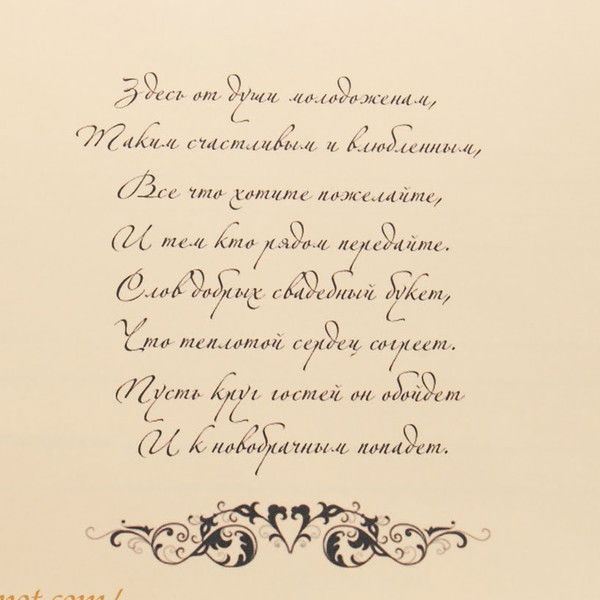 Здесь от души молодоженам,
Таким счастливым и влюбленным,
Все что хотите пожелайте,
И тем кто рядом передайте.
Слов добрых свадебный букет,
Что теплотой сердец согреет.
Пусть круг гостей он обойдет
И к новобрачным попадет.